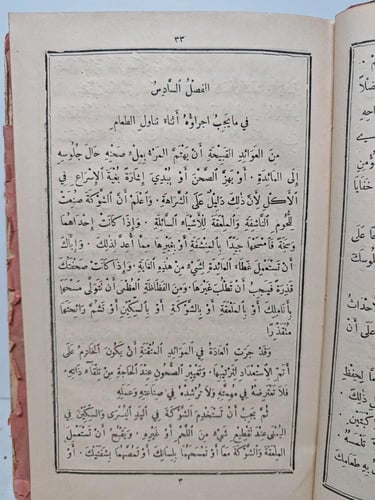 ٣٣
الفصلُ السَّادِسُ
في ما يَجِبُ اجراؤُهُ أَثناءَ تناوُلِ الطعامِ
مِنَ العَوائِدِ القَبيحَةِ أَنْ يَهْتَمَّ المَرْءُ بِمِلْءِ صَحْنِهِ حالَ جُلوسِهِ
إِلى المائِدَةِ. أَوْ يَهُزَّ الصَّحْنَ أَوْ يُبْدِيَ إِشارَةً بُغْيَةَ الإِسْراعِ في
الأَكْلِ لأَنَّ ذلكَ دَليلٌ عَلَى الشَّراهَةِ. وَاعْلَمْ أَنَّ الشَّوْكَةَ صُنِعَتْ
لِلُّحومِ النَّاشِفَةِ وَالمِلْعَقَةَ لِلأَشْياءِ السَّائِلَةِ. وَإِذا كانَتْ إِحْداهُما
وَسِخَةً فَامْسَحْها جَيِّدًا بِالمِنْشَفَةِ أَوْ بِغَيْرِها مِمَّا أُعِدَّ لِذلكَ. وَإِيَّاكَ
أَنْ تَسْتَعْمِلَ غِطاءَ المائِدَةِ لِشَيْءٍ مِنْ هذِهِ الغايَةِ. وَإِذا كانَتْ صَحْفَتُكَ
قَذِرَةً فَيَجِبُ أَنْ تَطْلُبَ غَيْرَها. وَمِنَ الفَظاظَةِ العُظْمى أَنْ تَتَوَلَّى مَسْحَها
بِأَنامِلِكَ أَوْ بِالمِلْعَقَةِ أَوْ بِالشَّوْكَةِ أَوْ بِالسِّكِّينِ أَوْ تَشُمَّ رائِحَتَها
مُتَقَذِّرًا
وَقَدْ جَرَتِ العادَةُ في المَوائِدِ المُتْقَنَةِ أَنْ يَكونَ الخادِمُ عَلَى
أَتَمِّ الإِسْتِعْدادِ لِتَرْتيبِها. وَتَغْييرِ الصُّحونِ عِنْدَ الحاجَةِ مِنْ تِلْقاءِ ذاتِهِ.
فَلا تَعْتَرِضْهُ في مُهِمَّتِهِ وَلا تُرْشِدْهُ في صِناعَتِهِ وَعَمَلِهِ
ثُمَّ يَجِبُ أَنْ تَسْتَخْدِمَ الشَّوْكَةَ في اليَدِ اليُسْرى وَالسِّكِّينَ في
اليُمْنى عِنْدَ تَقْطيعِ شَيْءٍ مِنَ اللَّحْمِ أَوْ غَيْرِهِ. وَيَقْبُحُ أَنْ تَسْتَعْمِلَ
المِلْعَقَةَ وَالشَّوْكَةَ مَعًا أَوْ تَمْسَحَهُما بِلِسانِكَ أَوْ تَمْتَصَّهُما بِشَفَتَيْكَ. أَوْ
٣